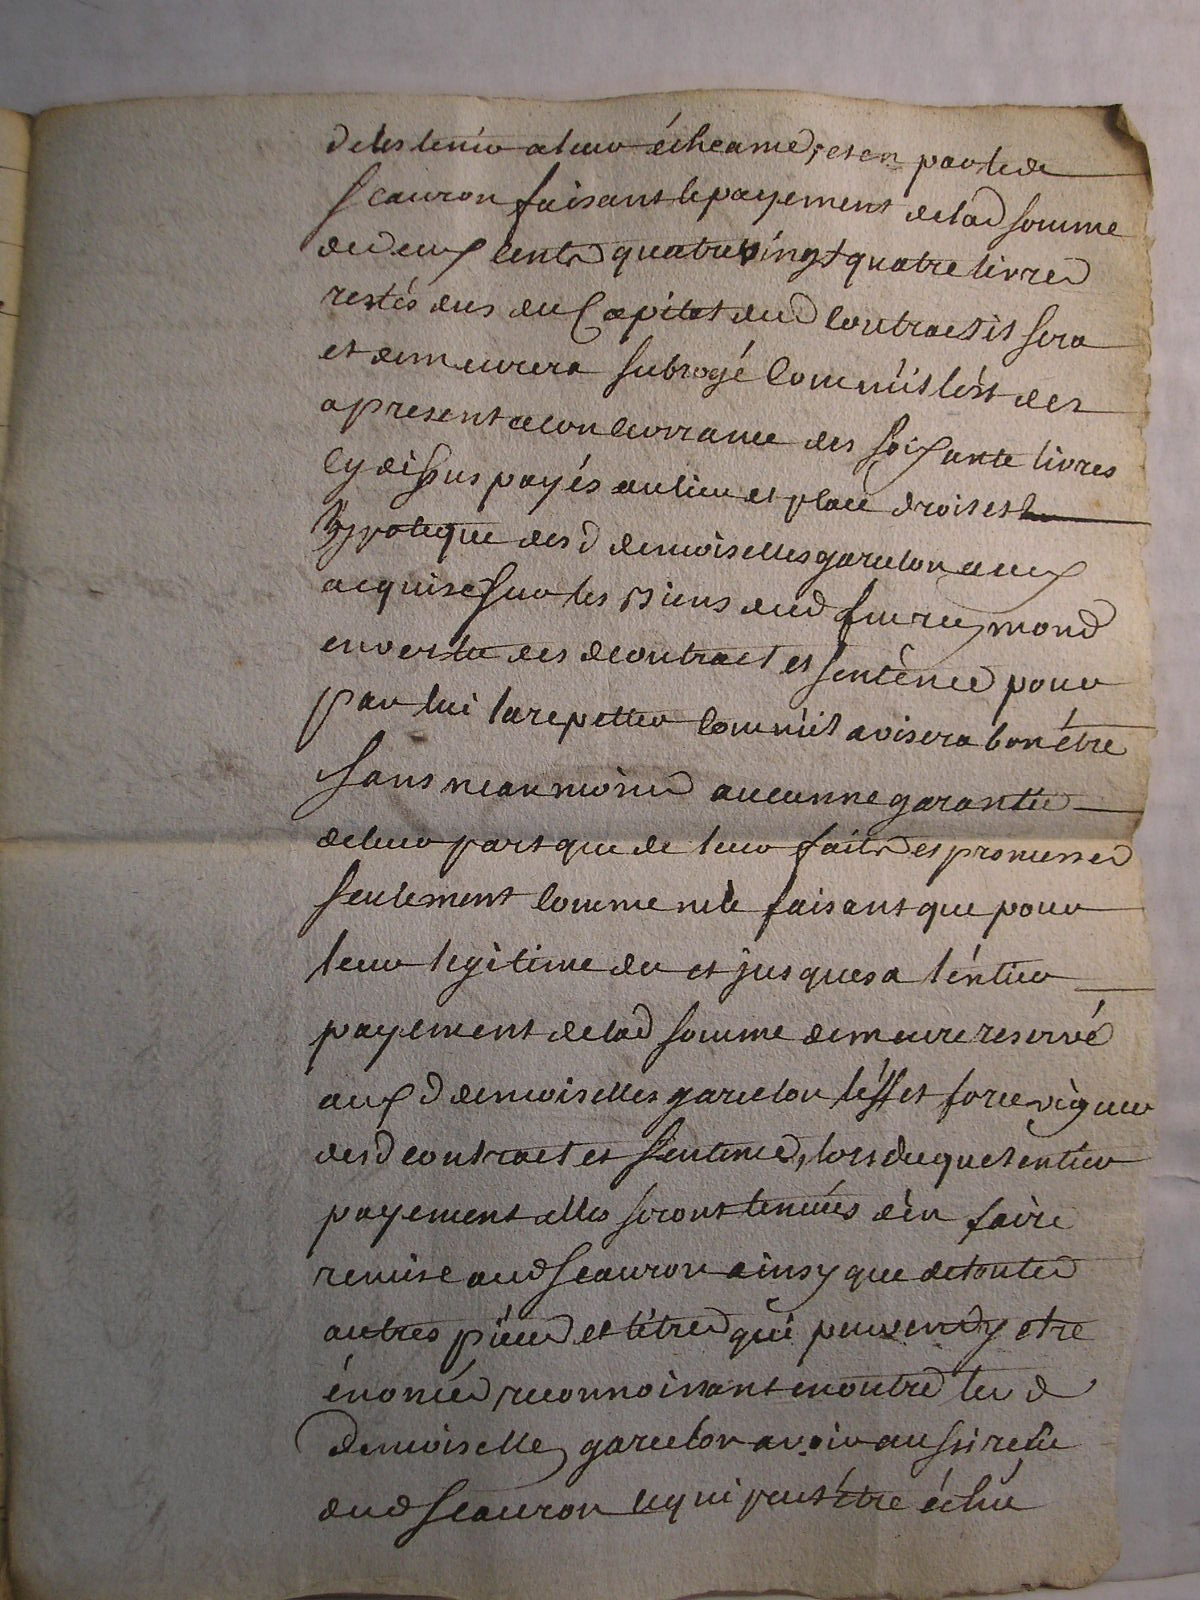 de les tenir a leur écheance, et en par led
Scauron faisant le payement de lad somme
de deux cents quatre vingt quatre livres
restés dus du Capital dud contract il sera
et demeurera subrogé comme il l'est des
a present a concurrance des soixante livres
cy dessus payés au lieu et place droits et
hypoteque desd demoiselles garcelon a eux
acquises sur les biens dud feu reymond
en vertu desd contract et sentence pour
par lui la repetter comme il avisera bon étre
sans neanmoins aucunne garantie
de leur part que de leur faits et promesses
seulement comme ne le faisant que pour
leur legitime du et jusques a l'éntier
payement de lad somme demeure reservé
aux d demoiselles garcelon l'éffet force vigueur
desd contract et sentence, lors duquel entier
payement elles seront tenuës d'én faire
remise aud Scauron ainsy que de toutes
autres piéces et titres qui peuvent y etre
énoncés, reconnoissant en outre les d
demoiselles garcelon avoir aussi resu
dud Scauron ce qui peut étre échu